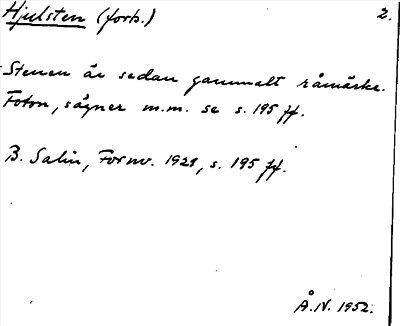 Hjulsten (forts.) 2.
Stenen är sedan gammalt råmärke.
Foton, sägner m.m. se s. 195 ff.
B. Salin, Fornv. 1929, s. 195 ff.
Å.N. 1952.